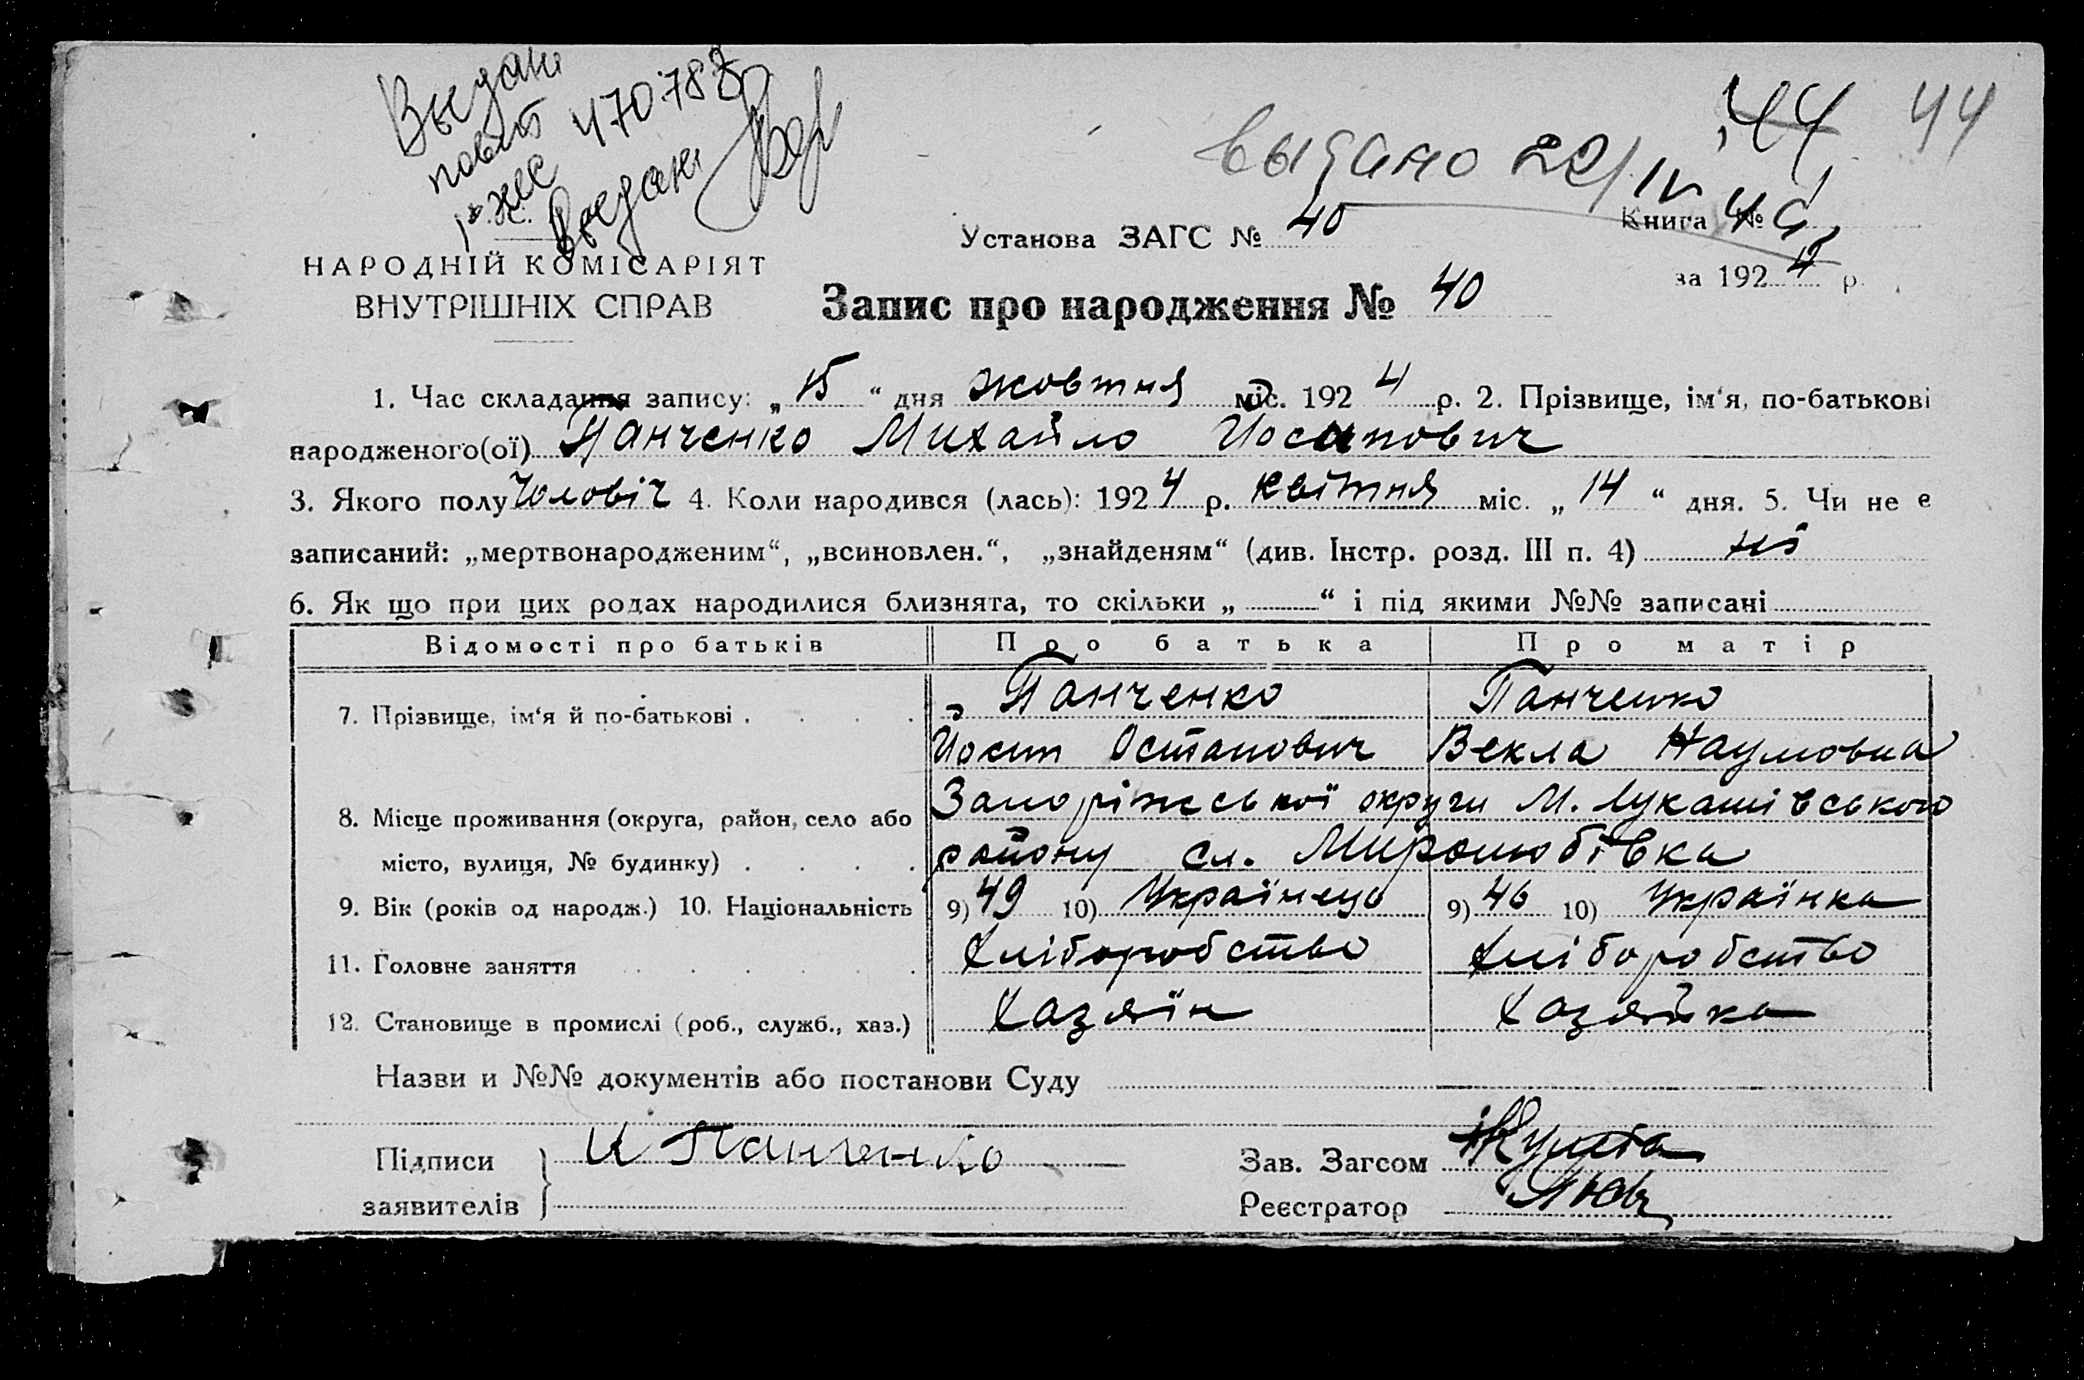 Выдано
повт
ж ее 470788
Выдано
44 44
выдано 29/IV
Установа ЗАГС № 40 Книга №
за 1924 р.
НАРОДНІЙ КОМІСАРІЯТ
ВНУТРІШНІХ СПРАВ
Запис про народження № 40
1. Час складання запису: „15“ дня жовтня міс. 1924 р. 2. Прізвище, ім‘я, по-батькові
народженого(ої) Панченко Михайло Йосипович
3. Якого полу Чоловіч 4. Коли народився (лась): 1924 р. квітня міс. „14“ дня. 5. Чи не є
записаний: „мертвонародженим“, „всиновлен.“, „знайденям“ (див. Інстр. розд. III п. 4) ні
6. Як що при цих родах народилися близнята, то скільки „ “ і під якими №№ записані
Відомості про батьків Про батька Про матір
7. Прізвище, ім‘я й по-батькові . . . . Панченко Панченко
Йосип Остапович Векла Наумовна
Запоріжської округи М. Лукашівського
8. Місце проживання (округа, район, село або
місто, вулиця, № будинку) . . . . району сл. Миролюбівка
9. Вік (років од народж.) 10. Національність 9) 49 10) Українець 9) 46 10) Українка
11. Головне заняття . . . . . Хліборобство Хліборобство
12. Становище в промислі (роб., служб., хаз.) Хазяїн Хазяйка
Назви и №№ документів або постанови Суду
Підписи И Панченко Зав. Загсом
заявителів Реєстратор